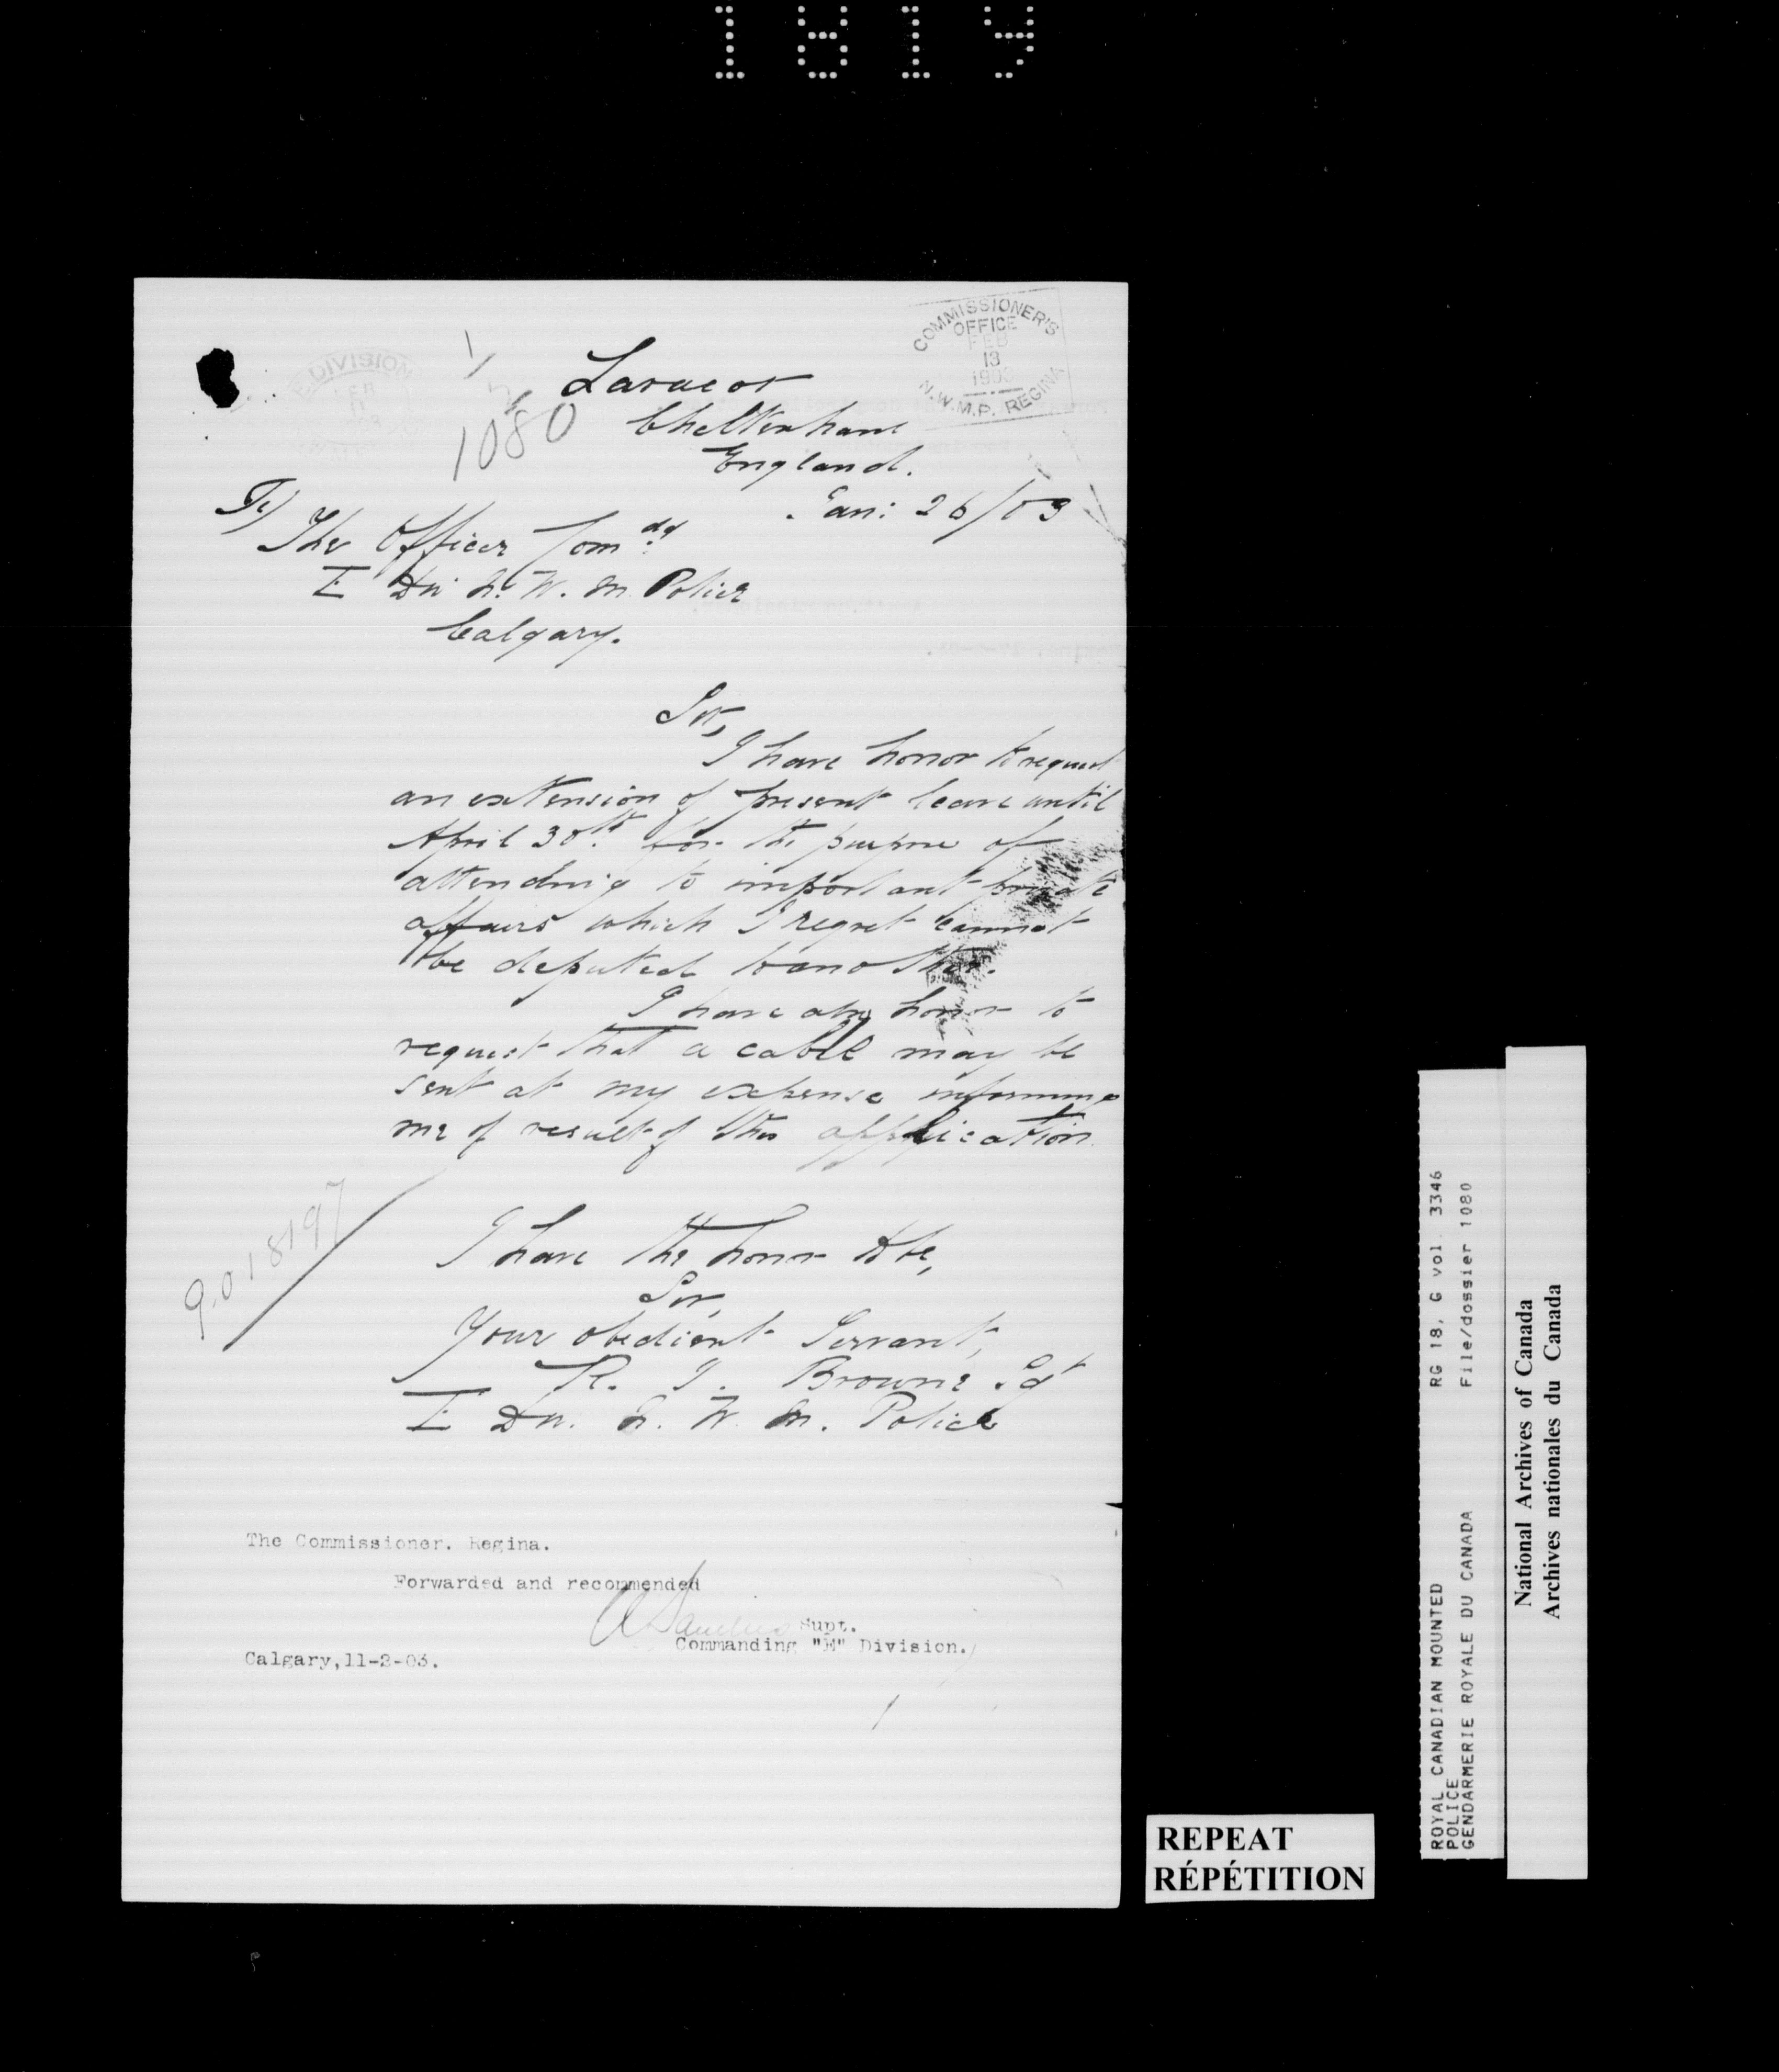 1819
COMMISSIONER'S
OFFICE
FEB
13
1903
N.W.M.P. REGINA
E. DIVISION
FEB
11
1080
Laracor
Cheltenham
England.
Jan: 26/03
To/
The Officer Comdg
E Div N. W. M. Police
Calgary.
Sir,
I have honor to request
an extension of present leave until
April 30th. for the purpose of
attending to important private
affairs which I regret cannot
be deputed to another.
I have also honor to
request that a cable may be
sent at my expense informing
me of result of this application.
9018197
I have the honor to be,
Sir,
Your obedient Servant,
Browne Sgt
E Div. N. W. M. Police
The Commissioner. Regina.
Forwarded and recommended
Supt.
Commanding "E" Division.
Calgary, 11-2-03.
REPEAT
RÉPÉTITION
ROYAL CANADIAN MOUNTED
POLICE
GENDARMERIE ROYALE DU CANADA
RG 18, G vol. 3346
File/dossier 1080
National Archives of Canada
Archives nationales du Canada